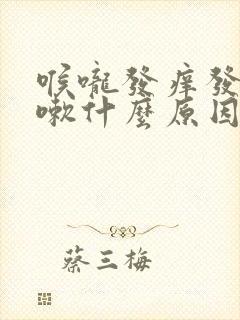 喉嚨發癢發
嗽什麼原因
蔡三梅